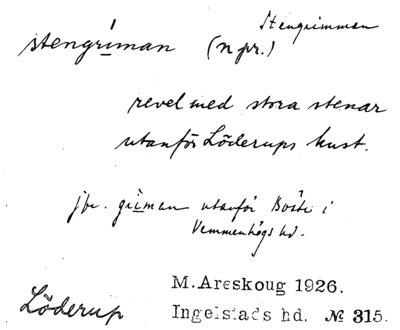 Stengrimman
stengriman (n pr.)
revel med stora stenar
utanför Löderups kust.
jfr. griman utanför Böste i
Vemmenhögs hd.
M. Areskoug 1926.
Löderup Ingelstads hd. № 315.